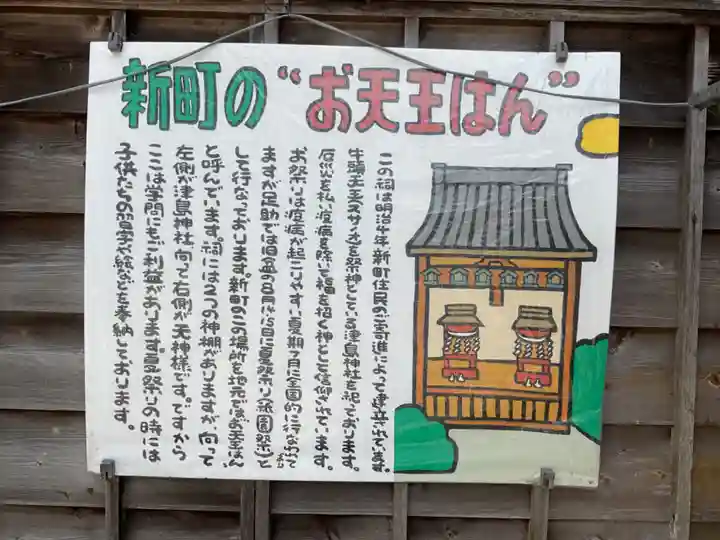 新町の“お天王はん”
この祠は明治4年、新町住民のご寄進によって建立されて
牛頭天王スサノ近を祭神としている津島神社を祀っております。
厄災を払い疫病を除いて福を招く神として信仰されています。
お祭りは疫病が起こりやすい夏期7月に全国的に行なわれて
ますが足助では旧盆の8月14,15日に夏祭り(祇園祭)と
して行なっております。新町のこの場所を地元ではお天王はん
と呼んでいます。祠には2つの神棚がありますが、向って
左側が津島神社、向って右側が天神様です。ですから
ここは学問にもご利益があります。夏祭りの時には
子供たちの習字や絵などを奉納しております。